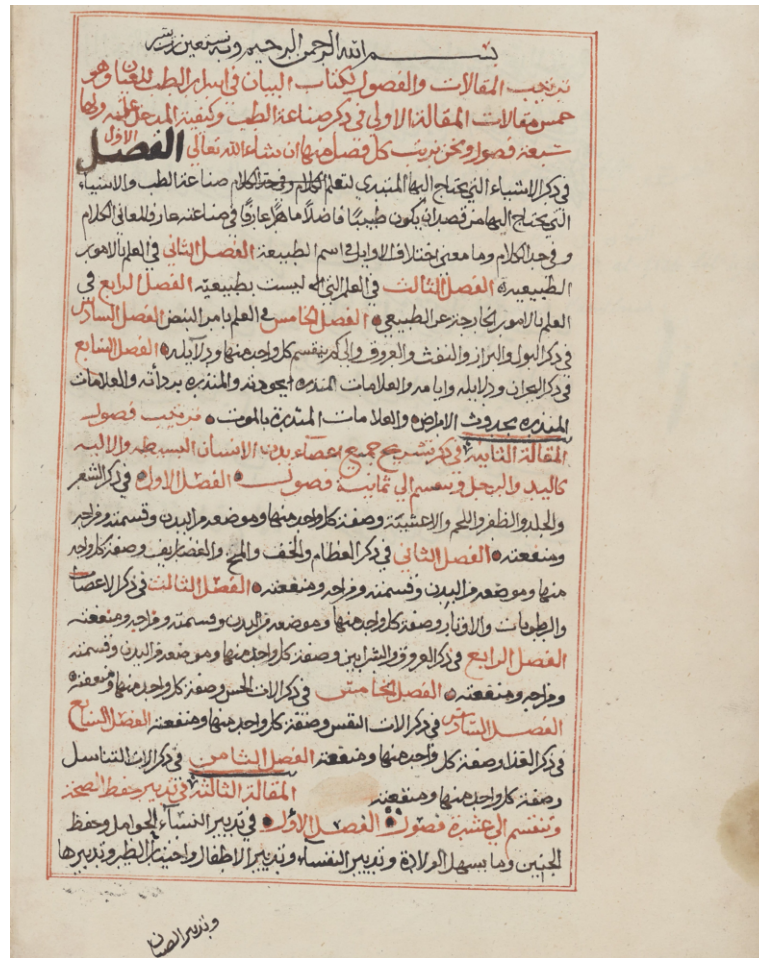 بسم الله الرحمن الرحيم وبه نستعين
ترتيب المقالات والفصول لكتاب البيان في اسرار الطب للعيان وهو
خمس مقالات المقالة الاولى في ذكر صناعة الطب وكيفية المدخل عليه ولها
سبعة فصول ونحن نرتب كل فصل منها ان شاء الله تعالى الفصل الاول
في ذكر الاشياء التي يحتاج اليها المبتدي لتعلم الكلام وفي حد الكلام صناعة الطب والاشياء
التي يحتاج اليها من قصد ان يكون طبيبًا فاضلًا ماهرًا عارفًا في صناعته عارف لمعاني الكلام
وفي حد الكلام وما معنى اختلاف الاوايل في اسم الطبيعة الفصل الثاني في العلم بالامور
الطبيعية الفصل الثالث في العلم التي ليست بطبيعية الفصل الرابع في
العلم بالامور الخارجة عن الطبيعي الفصل الخامس في العلم بامر النبض الفصل السادس
في ذكر البول والبراز والنفث والعروق والى كم ينقسم كل واحد منها ودلايله الفصل السابع
في ذكر البحران ودلايله وايامه والعلامات المنذره بجودته والمنذره برداته والعلامات
المنذره بحدوث الامراض والعلامات المنذرة بالموت ترتيب فصول
المقالة الثانية في ذكر تشريح جميع اعضاء بدن الانسان البسيطه والاليه
كاليد والرجل وينقسم الى ثمانية فصول الفصل الاول في ذكر الشعر
والجلد والظفر واللحم والاغشية وصفة كل واحد منها وموضعه من البدن وقسمته ومزاجه
ومنفعته الفصل الثاني في ذكر العظام والمخ والغضاريف وصفة كل واحد
منها وموضعه من البدن وقسمته ومزاجه ومنفعته الفصل الثالث في ذكر الاعصاب
والرطوبات والاوتار وصفة كل واحد منها وموضعه من البدن وقسمته ومزاجه ومنفعته
الفصل الرابع في ذكر العروق والشرايين وصفة كل واحد منها وموضعه من البدن وقسمته
ومزاجه ومنفعته الفصل الخامس في ذكر الات الحس وصفة كل واحد منها ومنفعته
الفصل السادس في ذكر الات النفس وصفة كل واحد منها ومنفعته الفصل السابع
في ذكر الغذا وصفة كل واحد منها ومنفعته الفصل الثامن في ذكر الات التناسل
وصفة كل واحد منها ومنفعته المقالة الثالثة في تدبير حفظ الصحة
وتنقسم الى عشرة فصول الفصل الاول في تدبير النساء الحوامل وحفظ
الجنين وما يسهل الولادة وتدبير النفساء وتدبير الاطفال واختيار الظير وتدبيرها
وتدبير الصبيان